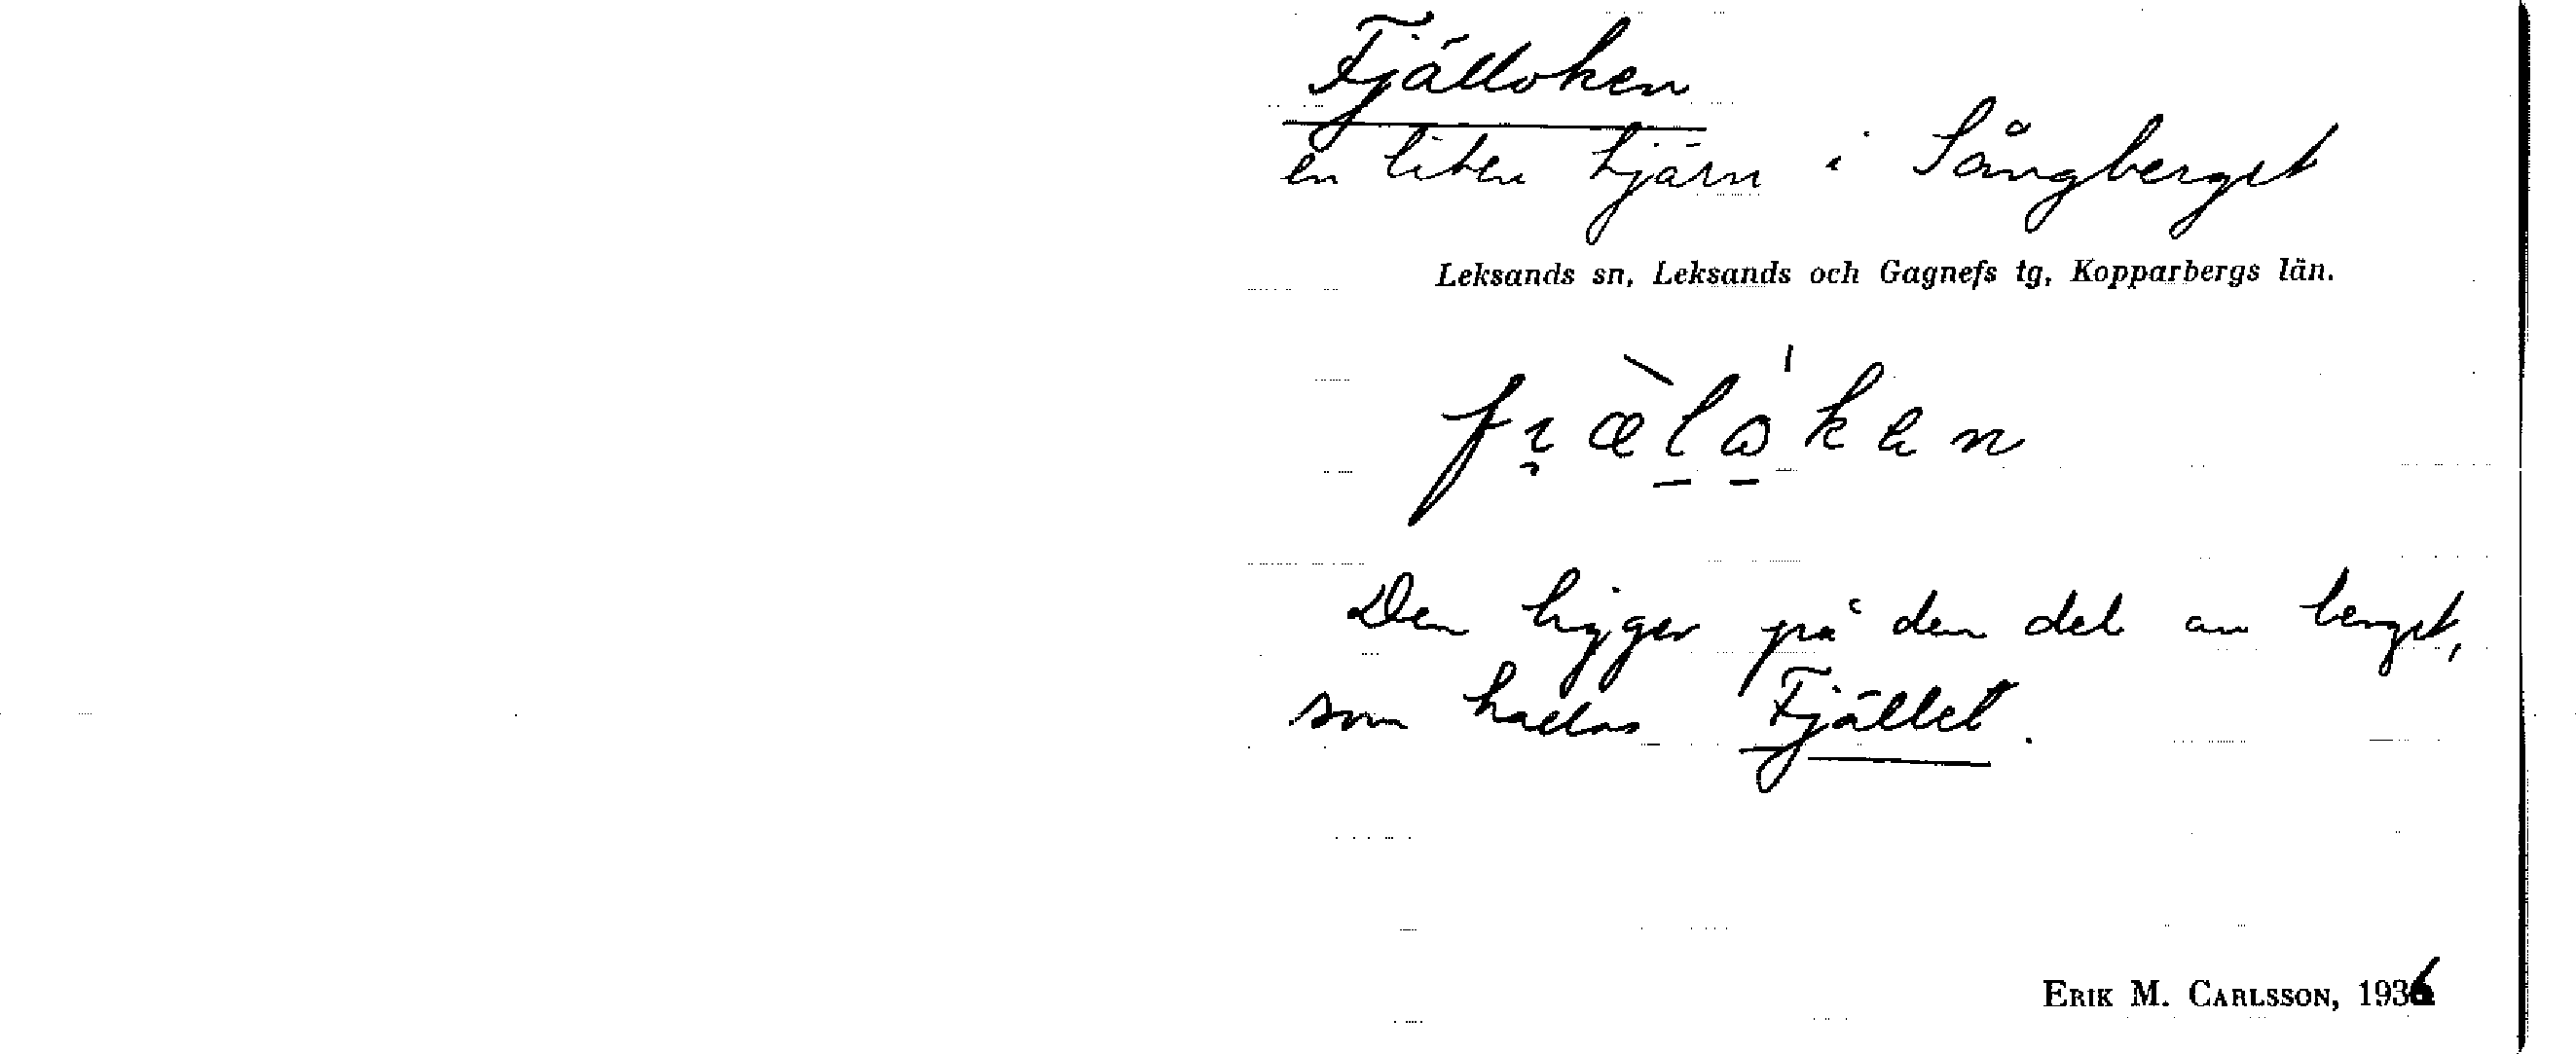 Fjälloken
en liten tjärn i Sångberget
Leksands sn, Leksands och Gagnefs tg, Kopparbergs län.
fi̯æ̀l̠ώ̠ken
Den ligger på den del av berget,
som kallas Fjället.
ERIK M. CARLSSON, 1936